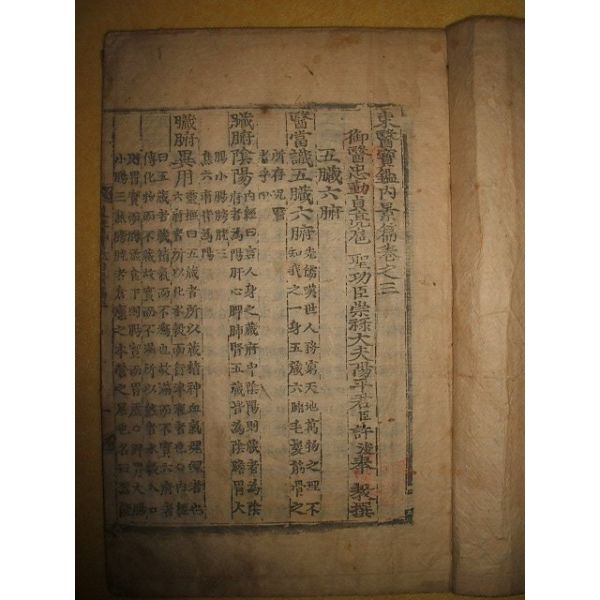 東醫寶鑑內景篇卷之三
御醫忠勤貞亮扈 聖功臣崇祿大夫陽平君臣許浚奉 敎撰
五臟六腑
醫當識五臟六腑 先儒嘆世人務窮天地萬物之理不
知我之一身五臟六腑毛髮筋骨之
所存况醫
者乎
臟腑陰陽 內經曰言人身之藏府中陰陽則藏者爲陰
府者爲陽肝心脾肺腎五藏皆爲陰膽胃大
腸小腸膀胱三
焦六府皆爲陽
臟腑異用 靈樞曰五藏者所以藏精神血氣魂魄者也
六府者所以化水穀而行津液者也
曰五藏者藏精氣而不瀉也故滿而不實六府者
傳化物而不藏故實而不滿所以然者水穀入口
則胃實而腸虛食下則腸實而胃虛
小腸三焦膀胱者倉廩之本營之居也名曰器